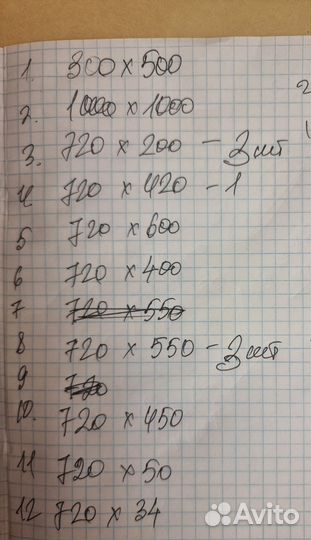 1. 300 x 500
2. 1000 x 1000
3. 720 x 200 - 3 шт
4 720 x 420 - 1
5 720 x 600
6 720 x 400
7 720 x 550
8 720 x 550 - 3 шт
9 720
10. 720 x 450
11 720 x 50
12 720 x 34
Avito